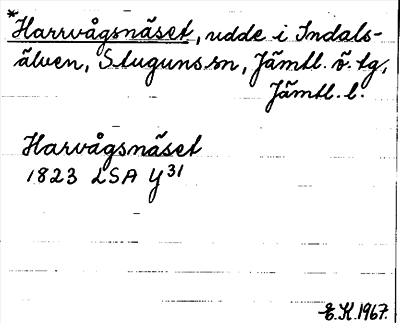 *Harrvågsnäset, udde i Indals-
älven, Stuguns sn, Jämtl. ö. tg,
Jämtl. l.
Harvågsnäset
1823 LSA Y31
E.K. 1967.